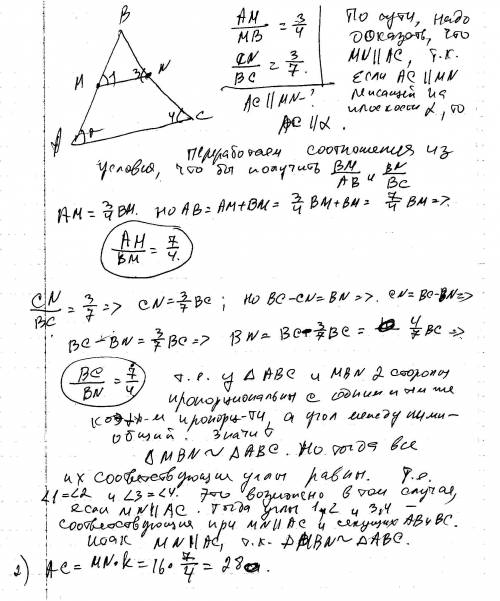 B
M 1 3 N
A 2 4 C
AM/MB = 3/4
CN/BC = 3/7.
AC || MN - ?
По сути, надо
доказать, что
MN || AC, т.к.
если AC || MN
лежащей на
плоскости α, то
AC || α.
Переработаем соотношения из
условия, что бы получить BM/AB и BN/BC
AM = 3/4 BM. Но AB = AM + BM = 3/4 BM + BM = 7/4 BM =>.
AH/BM = 7/4.
CN/BC = 3/7 => CN = 3/7 BC ; Но BC - CN = BN =>. CN = BC - BN =>
BC - BN = 3/7 BC => BN = BC - 3/7 BC = 4/7 BC =>
BC/BN = 7/4 т.е. у △ ABC и MBN 2 стороны
пропорциональны с одним и тем же
коэф-м пропорц-ти, а угол между ними -
общий. Значит
△ MBN ~ △ ABC. Но тогда все
их соответствующие углы равны. Т.е.
∠1 = ∠2 и ∠3 = ∠4. Это возможно в том случае,
если MN || AC. Тогда углы 1,2 и 3,4 -
соответствующие при MN || AC и секущих AB и BC.
Итак MN || AC, т.к. △ MBN ~ △ ABC.
2) AC = MN · k = 16 · 7/4 = 28